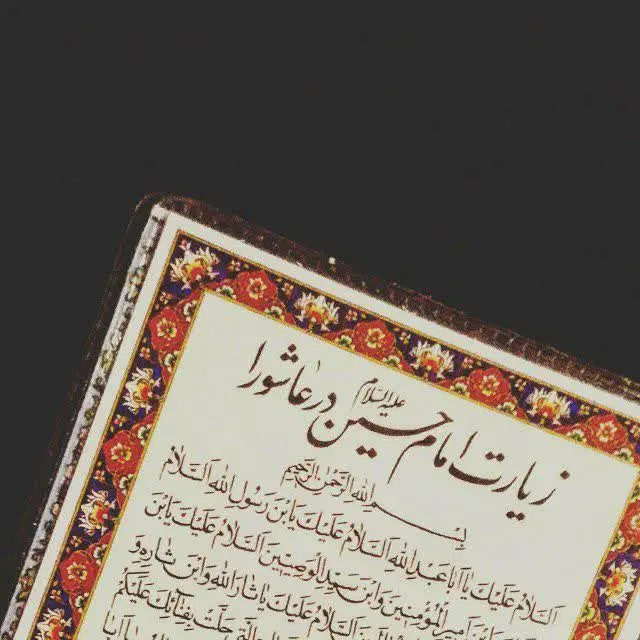 زیارت امام حسین علیه السلام در عاشورا
بِسْمِ اللهِ الرَّحْمٰنِ الرَّحِیمِ
اَلسَّلامُ عَلَیْكَ یا اَبا عَبْدِ اللهِ اَلسَّلامُ عَلَیْكَ یَا بْنَ رَسُولِ اللهِ اَلسَّلامُ
عَلَیْكَ یَا بْنَ اَمیرِ الْمُؤْمِنینَ وَابْنَ سَیِّدِ الْوَصِیّینَ اَلسَّلامُ عَلَیْكَ یَا بْنَ
اَلسَّلامُ عَلَیْكَ یا ثارَ اللهِ وَابْنَ ثارِهِ وَ
الَّتی حَلَّتْ بِفِنائِكَ عَلَیْكُمْ